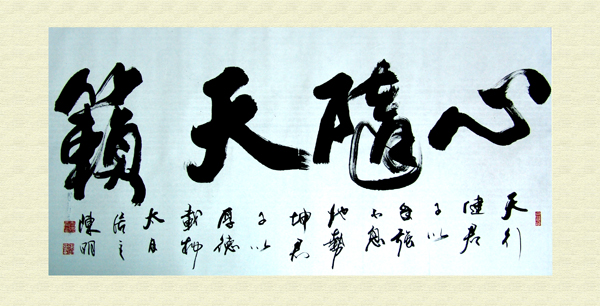 心隨天籟
天行
健君
子以
自強
不息
地勢
坤君
子以
厚德
載物
陳明